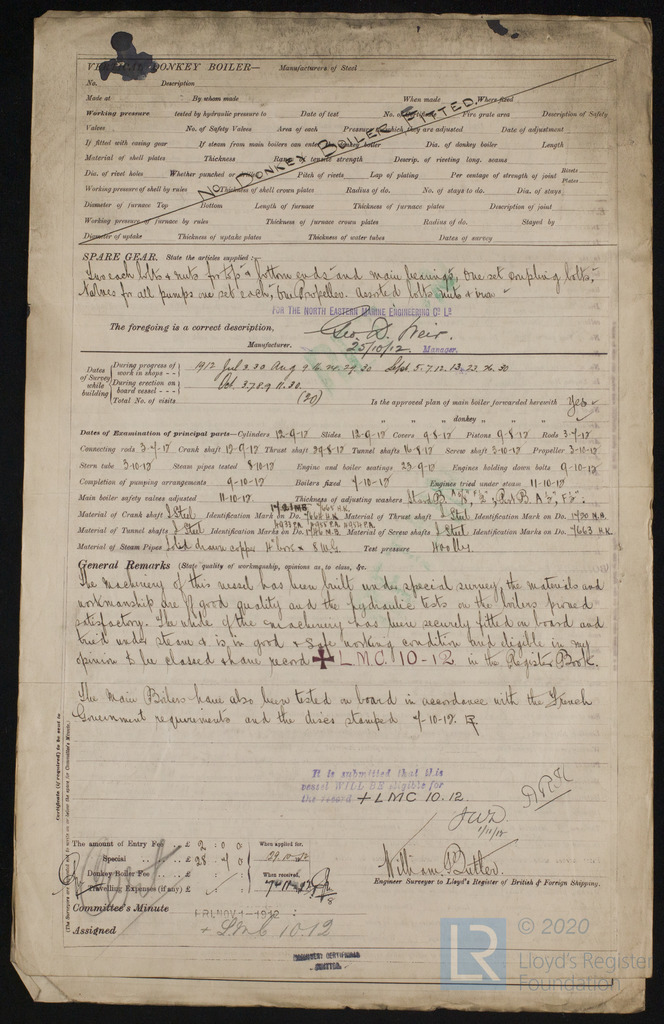 VERTICAL DONKEY BOILER— Manufacturers of Steel
No. Description
Made at By whom made When made Where fixed
Working pressure tested by hydraulic pressure to Date of test No. of Certificate Fire grate area Description of Safety
Valves No. of Safety Valves Area of each Pressure to which they are adjusted Date of adjustment
If fitted with easing gear If steam from main boilers can enter the donkey boiler Dia. of donkey boiler Length
Material of shell plates Thickness Range of tensile strength Descrip. of riveting long. seams
Dia. of rivet holes Whether punched or drilled Pitch of rivets Lap of plating Per centage of strength of joint Rivets Plates
Working pressure of shell by rules Thickness of shell crown plates Radius of do. No. of stays to do. Dia. of stays
Diameter of furnace Top Bottom Length of furnace Thickness of furnace plates Description of joint
Working pressure of furnace by rules Thickness of furnace crown plates Radius of do. Stayed by
Diameter of uptake Thickness of uptake plates Thickness of water tubes Dates of survey
NO DONKEY BOILER FITTED.
SPARE GEAR. State the articles supplied:—
Two each bolts & nuts for top & bottom ends and main bearings, One set coupling bolts,
Valves for all pumps one set each, One Propeller. Assorted bolts nuts & iron
FOR THE NORTH EASTERN MARINE ENGINEERING Co Ld
The foregoing is a correct description,
Geo. D. Weir.
Manufacturer. 25/10/12. Manager.
Dates of Survey while building
During progress of work in shops - - 1912 Jul 3.30 Aug 9.16.24.29.30 Sept. 5.7.12.13.23.26.30
During erection on board vessel - - - Oct. 3.7.8.9.11.30.
Total No. of visits (20) Is the approved plan of main boiler forwarded herewith Yes
" " " donkey " " "
Dates of Examination of principal parts—Cylinders 12-9-12 Slides 12-9-12 Covers 9-8-12 Pistons 9-8-12 Rods 3-7-12
Connecting rods 3-7-12 Crank shaft 12-9-12 Thrust shaft 29-8-12 Tunnel shafts 16-8-12 Screw shaft 3-10-12 Propeller 3-10-12
Stern tube 3-10-12 Steam pipes tested 8-10-12 Engine and boiler seatings 23-9-12 Engines holding down bolts 9-10-12
Completion of pumping arrangements 9-10-12 Boilers fixed 7-10-12 Engines tried under steam 11-10-12
Main boiler safety valves adjusted 11-10-12 Thickness of adjusting washers
Material of Crank shaft I Steel Identification Mark on Do. Material of Thrust shaft I Steel Identification Mark on Do. 1720 M.B.
Material of Tunnel shafts I Steel Identification Marks on Do. Material of Screw shafts I Steel Identification Marks on Do. 7663 H.K.
Material of Steam Pipes Solid drawn copper 4" bore x 8 W.G. Test pressure 400 lbs.
General Remarks (State quality of workmanship, opinions as to class, &c.
The machinery of this vessel has been built under special survey, the materials and
workmanship are of good quality and the hydraulic tests on the boilers proved
satisfactory. The whole of the machinery has been securely fitted on board and
tried under steam & is in good & safe working condition and eligible in my
opinion to be classed & have record ✠ L.M.C. 10-12 in the Register Book.
The Main Boilers have also been tested on board in accordance with the French
Government requirements and the discs stamped 7-10-12.
It is submitted that this
vessel WILL BE eligible for
the record + LMC 10.12.
J.W.D.
1/11/12
Certificate (if required) to be sent to
(The Surveyors are requested not to write on or below the space for Committee's Minute.)
The amount of Entry Fee .. £ 2 : 0 : 0 When applied for,
Special .. .. £ 28 : 4 : 0 29.10.12
Donkey Boiler Fee .. .. £ : : When received,
Travelling Expenses (if any) £ : :
William Butler.
Engineer Surveyor to Lloyd's Register of British & Foreign Shipping.
Committee's Minute FRI. NOV. 1 - 1912
Assigned + L.M.C 10.12
MACHINERY CERTIFICATE
WRITTEN.
© 2020
LR Lloyd's Register
Foundation